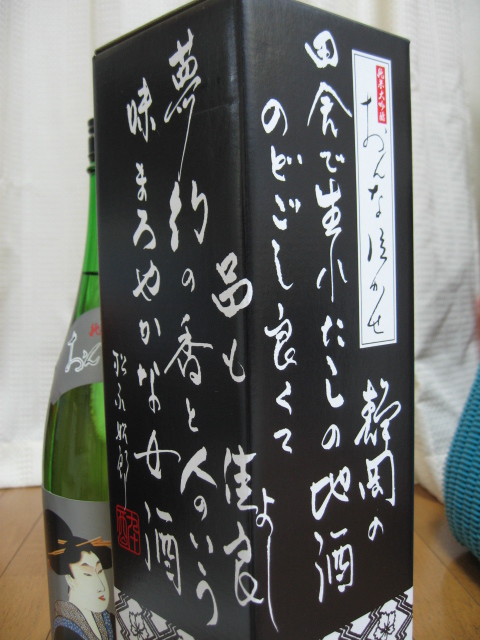 純米大吟醸
おんな泣かせ
静岡の
田舎で生れたしの地酒
のどごし良くて
品も佳良よし
夢幻の香と人のいう
味まろやかな女酒
純
おん